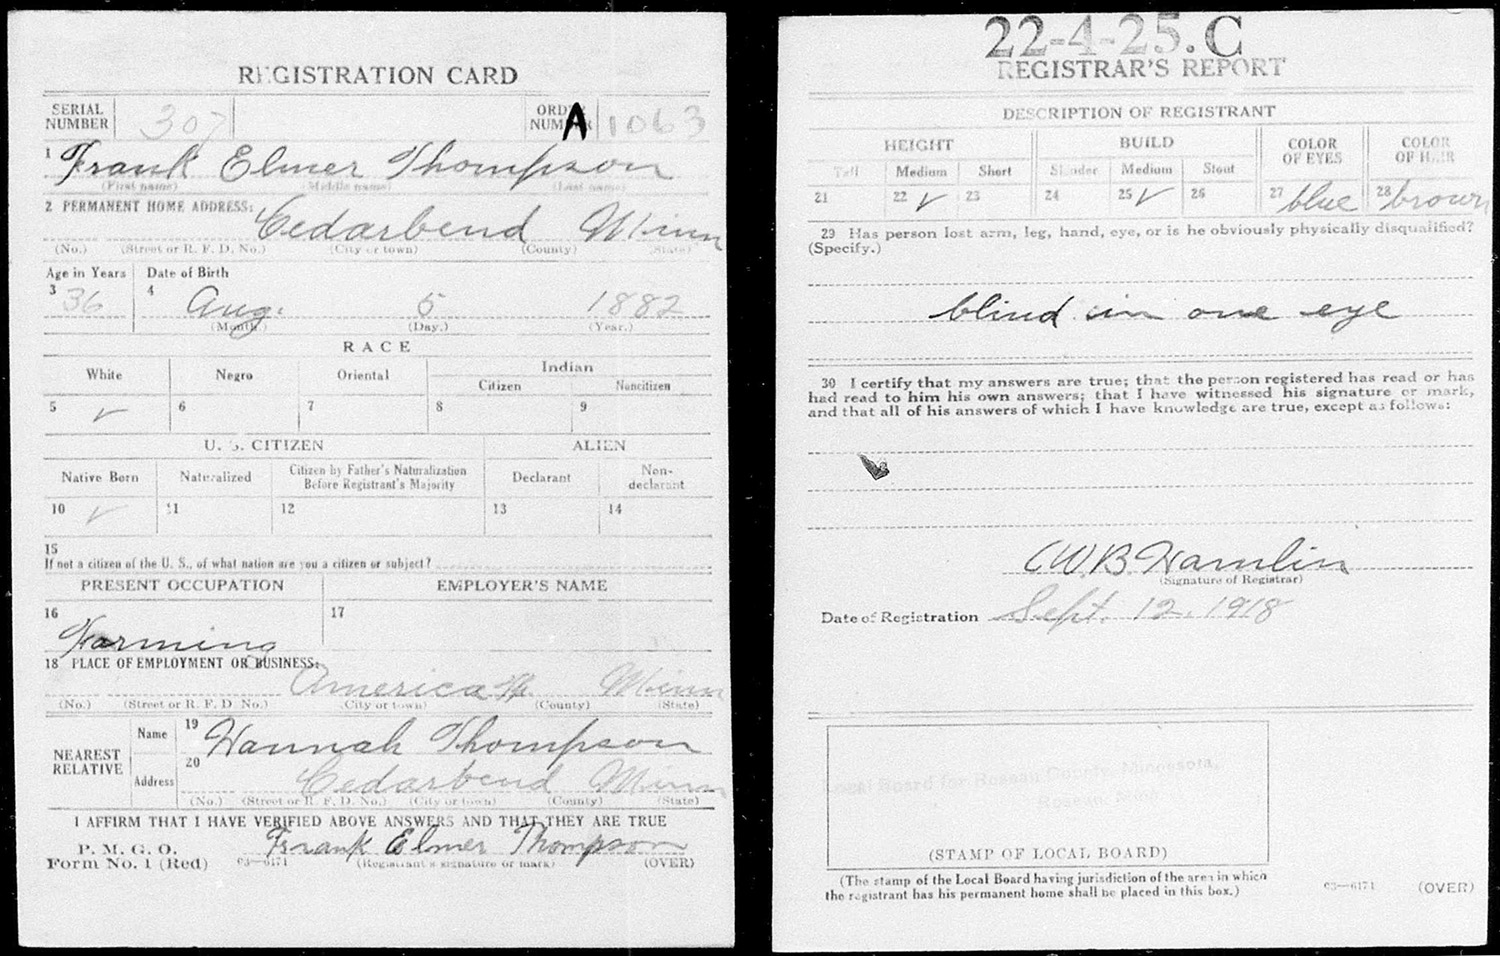 REGISTRATION CARD
SERIAL NUMBER 307 ORDER NUMBER A 1063
1 Frank Elmer Thompson
(First name) (Middle name) (Last name)
2 PERMANENT HOME ADDRESS:
Cedarbend Minn
(No.) (Street or R. F. D. No.) (City or town) (County) (State)
Age in Years Date of Birth
3 36 4 Aug. 5 1882
(Month.) (Day.) (Year.)
RACE
White Negro Oriental Indian
Citizen Noncitizen
5 ✓ 6 7 8 9
U. S. CITIZEN ALIEN
Native Born Naturalized Citizen by Father's Naturalization Before Registrant's Majority Declarant Non-declarant
10 ✓ 11 12 13 14
15
If not a citizen of the U. S., of what nation are you a citizen or subject?
PRESENT OCCUPATION EMPLOYER'S NAME
16 17
Farming
18 PLACE OF EMPLOYMENT OR BUSINESS:
America Minn
(No.) (Street or R. F. D. No.) (City or town) (County) (State)
NEAREST RELATIVE
Name 19 Hannah Thompson
Address 20 Cedarbend Minn
(No.) (Street or R. F. D. No.) (City or town) (County) (State)
I AFFIRM THAT I HAVE VERIFIED ABOVE ANSWERS AND THAT THEY ARE TRUE
P. M. G. O.
Form No. 1 (Red) 03—6171 Frank Elmer Thompson
(Registrant's signature or mark) (OVER)
22-4-25. C
REGISTRAR'S REPORT
DESCRIPTION OF REGISTRANT
HEIGHT BUILD COLOR OF EYES COLOR OF HAIR
Tall Medium Short Slender Medium Stout
21 22 ✓ 23 24 25 ✓ 26 27 blue 28 brown
29 Has person lost arm, leg, hand, eye, or is he obviously physically disqualified?
(Specify.)
blind in one eye
30 I certify that my answers are true; that the person registered has read or has
had read to him his own answers; that I have witnessed his signature or mark,
and that all of his answers of which I have knowledge are true, except as follows:
C W B Hamlin
(Signature of Registrar)
Date of Registration Sept. 12, 1918
Local Board for Roseau County, Minnesota,
Roseau, Minn.
(STAMP OF LOCAL BOARD)
(The stamp of the Local Board having jurisdiction of the area in which
the registrant has his permanent home shall be placed in this box.)
03—6171 (OVER)